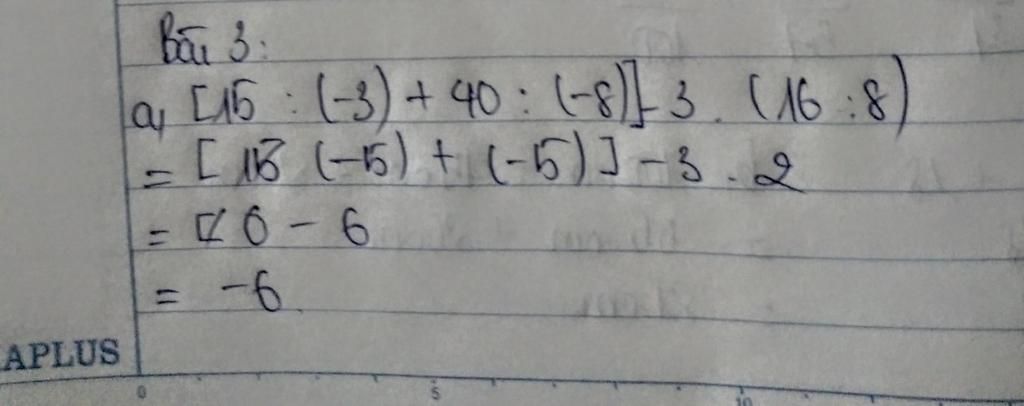 Bài 3:
a, [15 : (-3) + 40 : (-8)] - 3 . (16 : 8)
= [ (-5) + (-5) ] - 3 . 2
= 0 - 6
= -6
APLUS
0 5 10